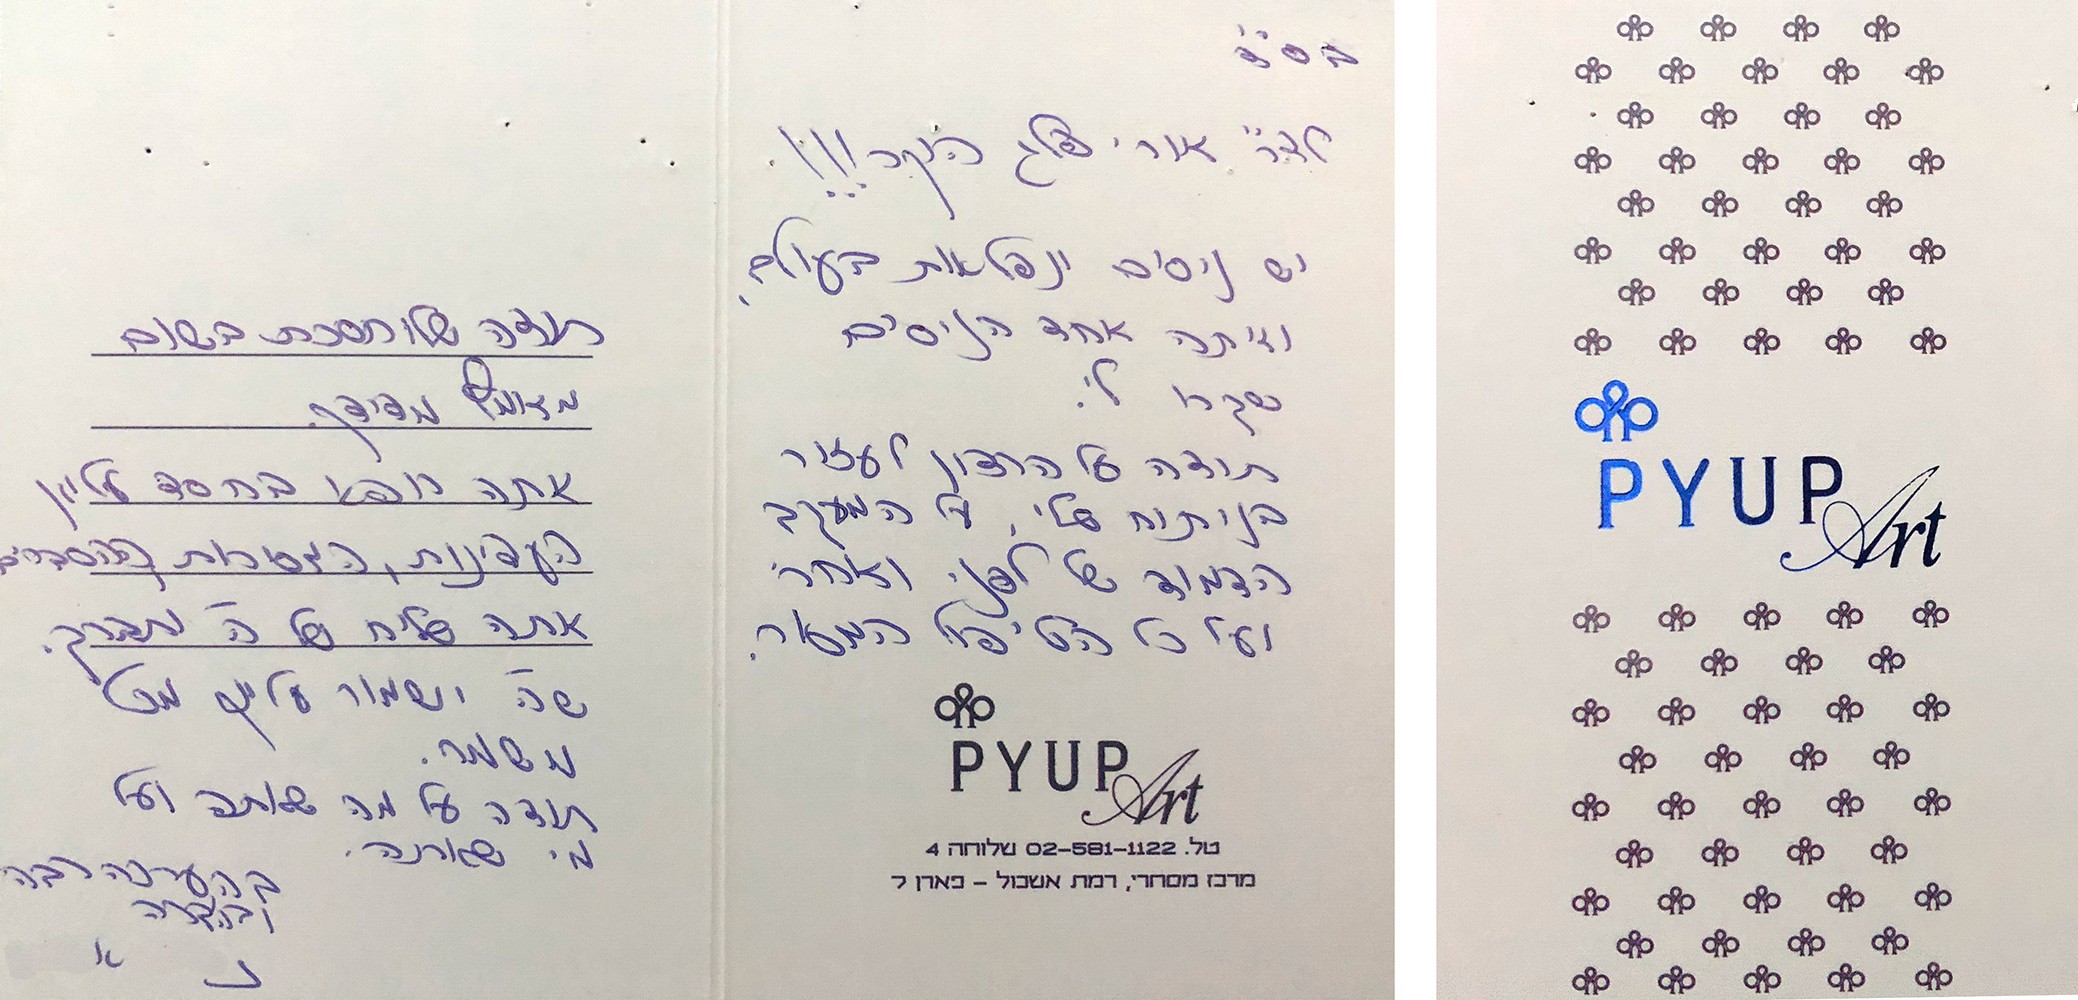 בס"ד
לדר' אורי פלג היקר!!!
יש ניסים ונפלאות בעולם,
ואתה אחד הניסים
שקרו לי.
תודה על הרצון לעזור
בניתוח שלי, על המעקב
הצמוד של לפני ואחרי
ועל כל הטיפול המסור.
PYUP Art
טל. 02-581-1122 שלוחה 4
מרכז מסחרי, רמת אשכול - פארן 7
תודה שלא חסכת בשום
מאמץ מצידך.
אתה רופא בחסד עליון
העדינות, המסירות וההסברים
אתה שליח של ה' יתברך.
שה' ישמור עליך מכל
משמר.
תודה על מה שאתה ועל
מי שאתה.
בהערכה רבה
ובהצלחה
נ א
PYUP Art